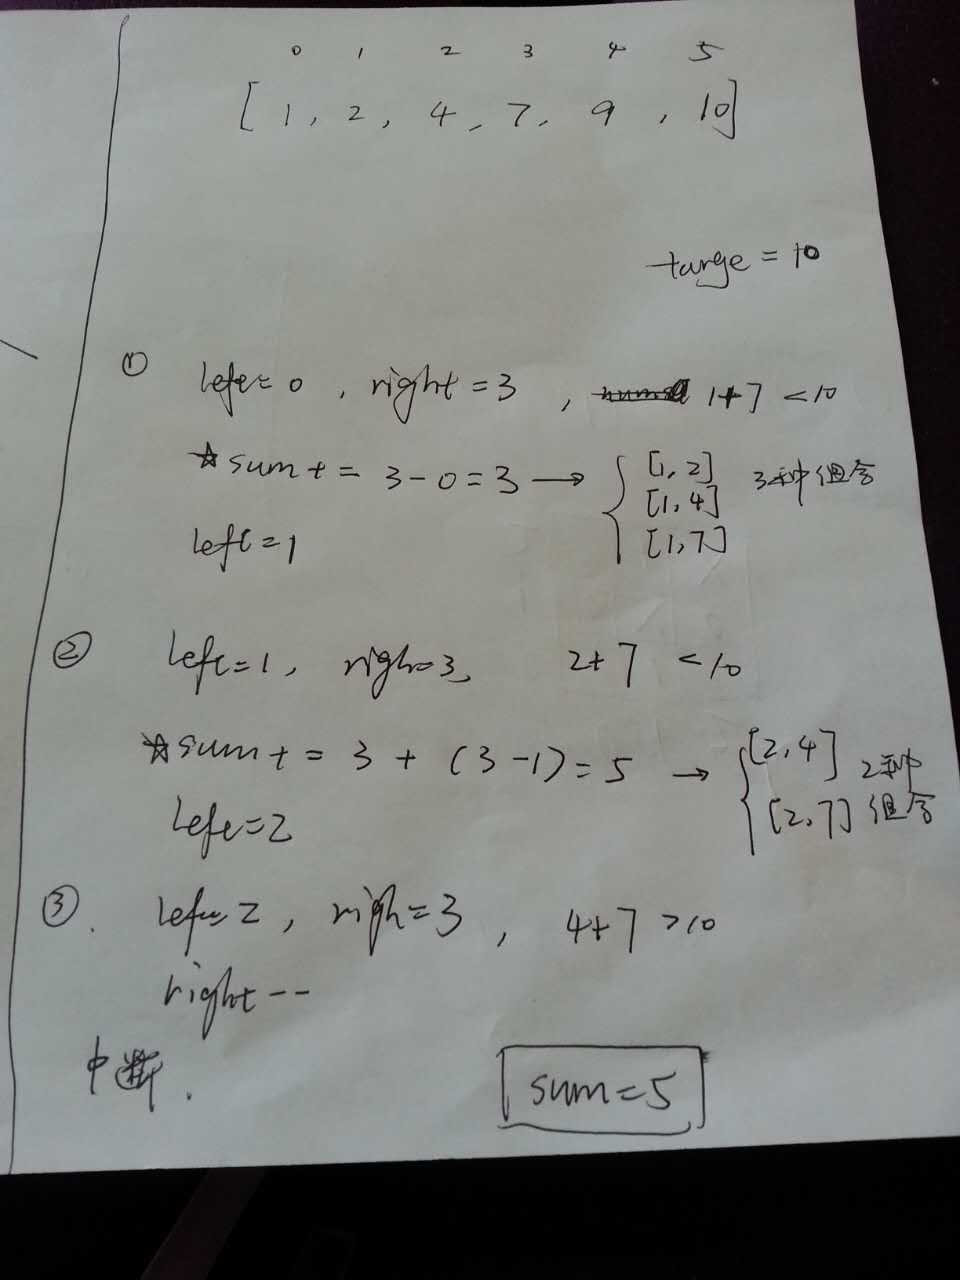 0 1 2 3 4 5
[ 1, 2, 4, 7, 9, 10]
targe = 10
① left=0, right=3, 1+7 <10
☆sum+= 3-0=3 → { [1,2] [1,4] [1,7] 3种组合
left=1
② left=1, righ=3, 2+7 <10
☆sum+= 3 + (3-1)=5 → { [2,4] [2,7] 2种组合
left=2
③. left=2, righ=3, 4+7 >10
right--
中断.
sum=5